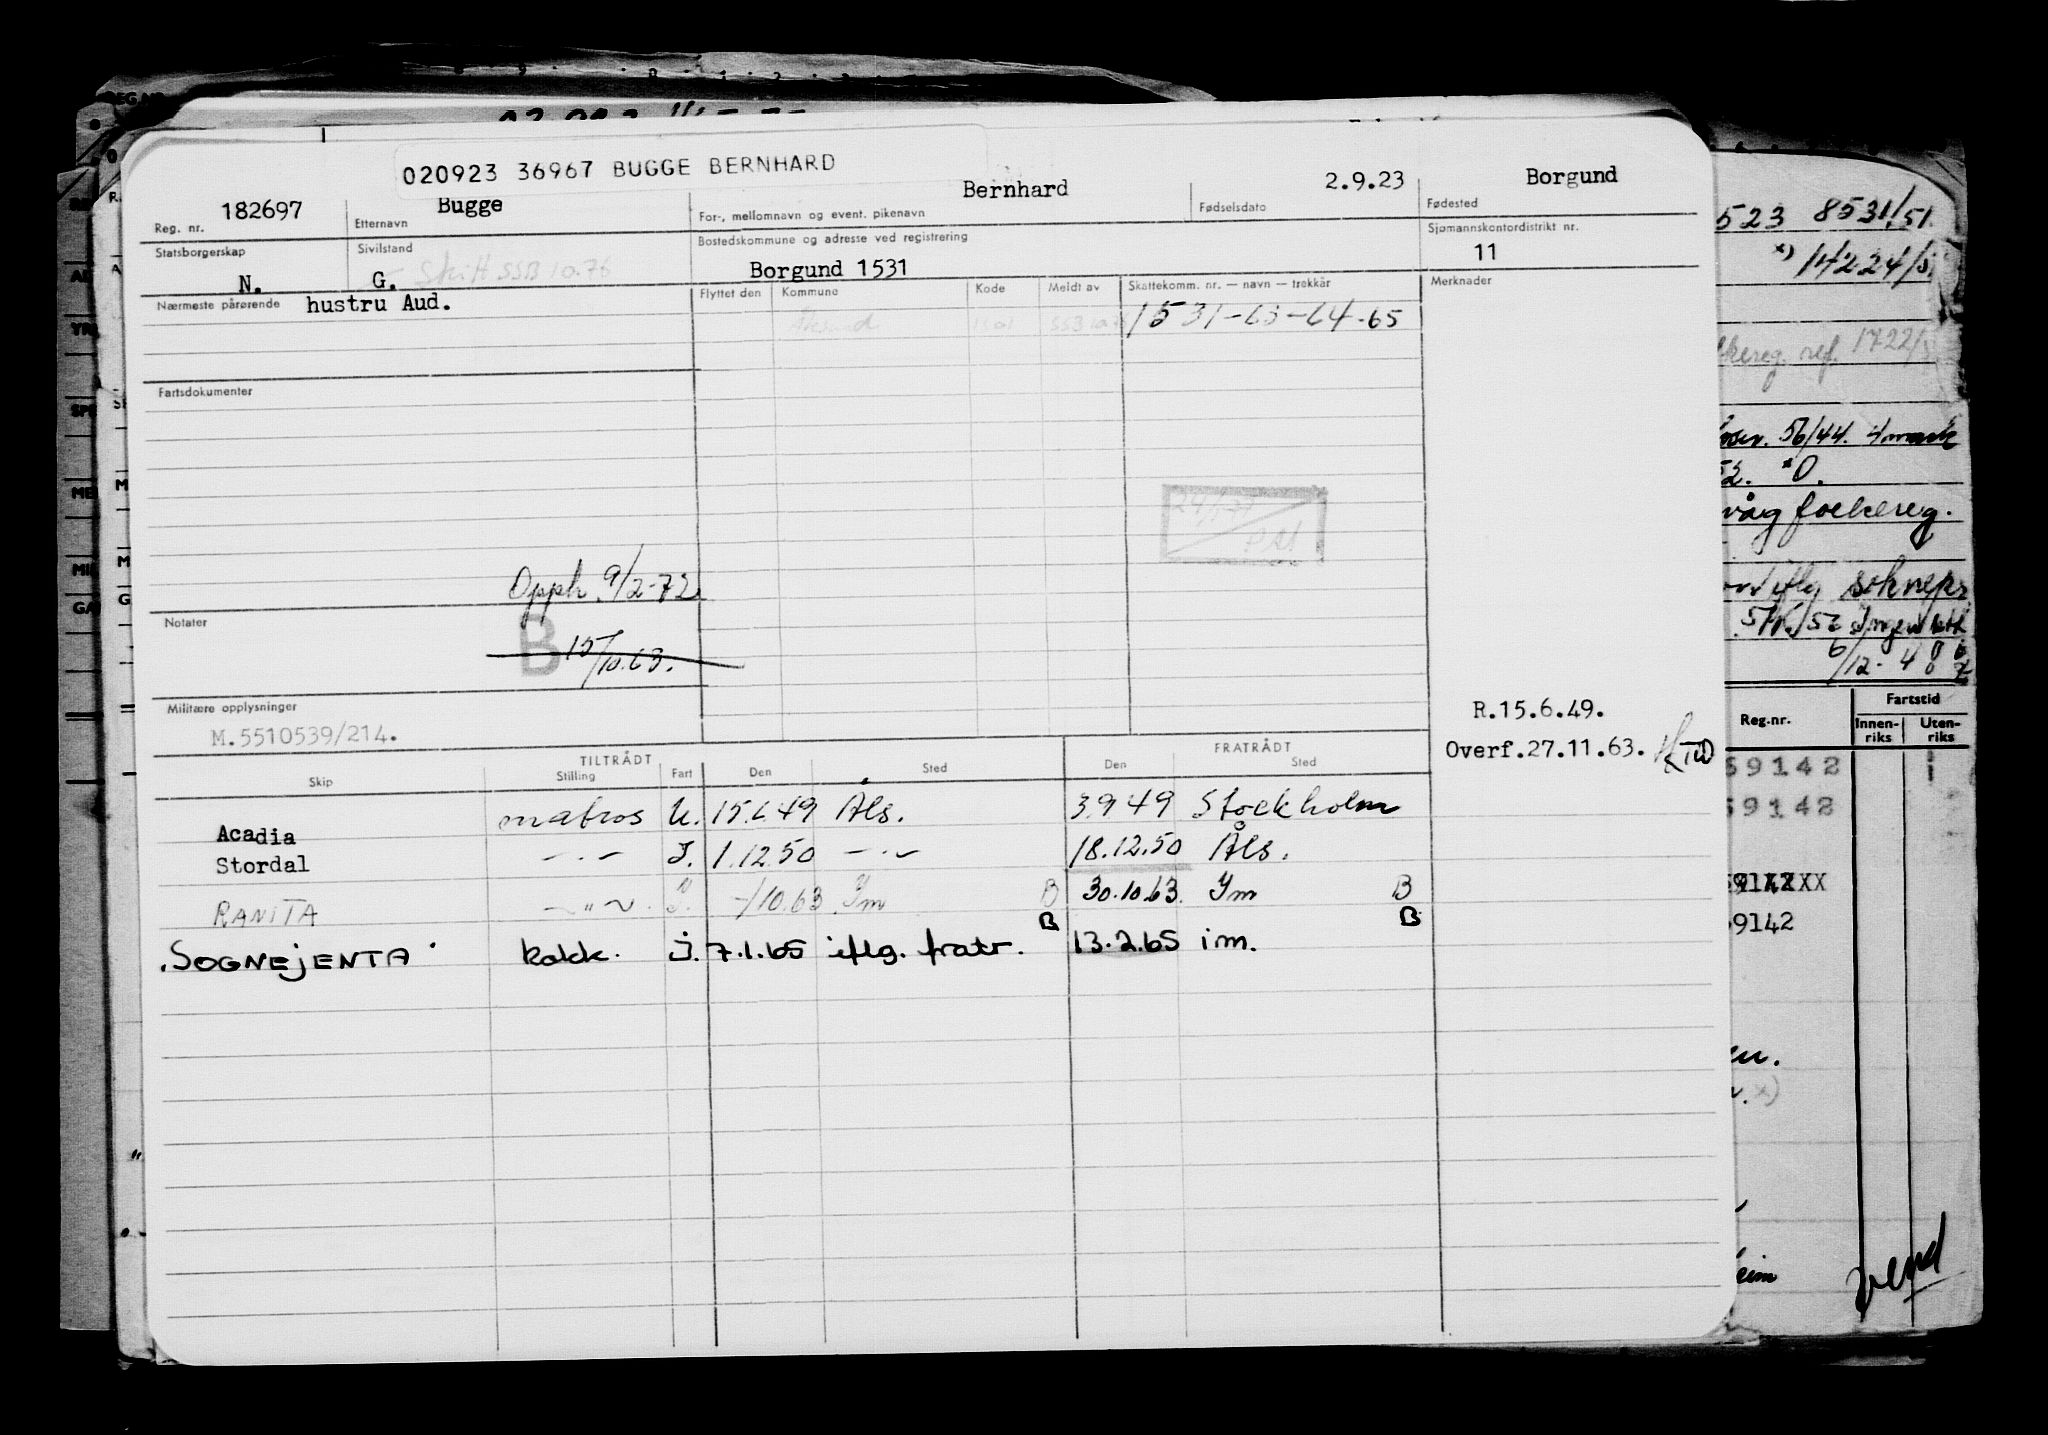 020923 36967 BUGGE BERNHARD
182697 Bugge Bernhard 2.9.23 Borgund
Reg. nr. Etternavn For-, mellomnavn og event. pikenavn Fødselsdato Fødested
Statsborgerskap Sivilstand Bostedskommune og adresse ved registrering Sjømannskontordistrikt nr.
N. G. Skift SSB 10.76 Borgund 1531 11
Nærmeste pårørende hustru Aud. Flyttet den Kommune Kode Meldt av Skattekomm. nr. — navn — trekkår Merknader
Ålesund 1501 SSB 10.76 1531-63-64-65
Fartsdokumenter
Opph. 9/2-72
Notater
B 15/10.63.
Militære opplysninger
M.5510539/214.
R.15.6.49.
Overf.27.11.63.
TILTRÅDT FRATRÅDT
Skip Stilling Fart Den Sted Den Sted
Acadia matros U. 15.6.49 Åls. 3.9.49 Stockholm
Stordal —.— I. 1.12.50 —.— 18.12.50 Åls.
RANITA —"— I. -/10.63 Ym B 30.10.63. Ym B
B B
"SOGNEJENTA" kokk. i. 7.1.65 iflg. fratr. 13.2.65 im.
523 8531/51.
x) 14224/5
reg. ref. 1722/5
56/44. 4 merk
52. *0.
våg folkereg.
6/12-48
Reg.nr. Fartstid
Innen-riks Uten-riks
59142
59142
59142XXX
59142
vend